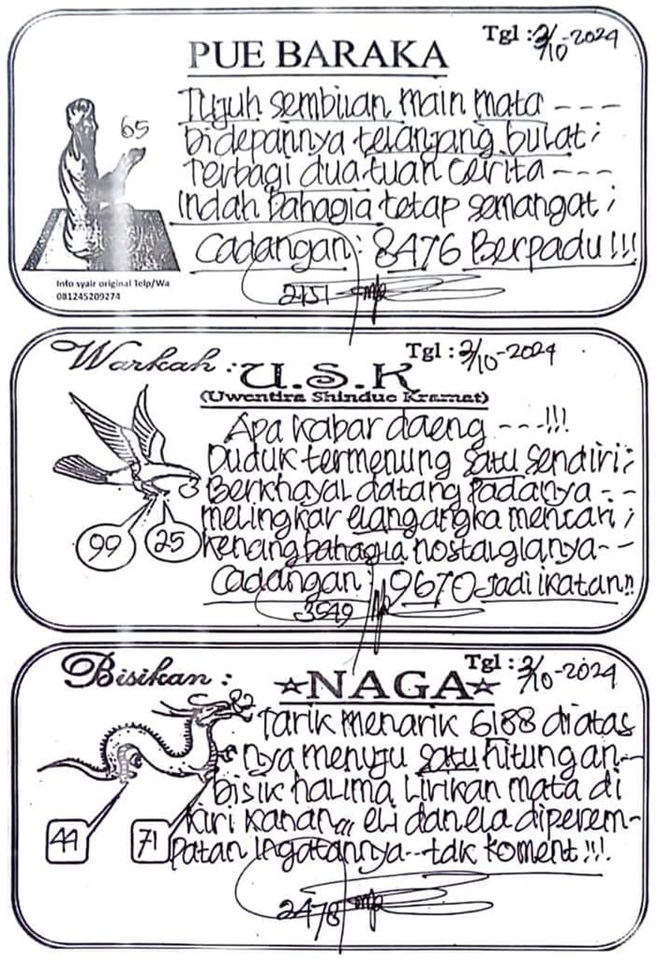 PUE BARAKA
Tgl : 3/10-2024
65
Tujuh sembilan main mata ---
Didepannya telanjang bulat ;
Terbagi dua tuan cerita ---
Indah bahagia tetap semangat ;
Cadangan : 8476 Berpadu !!!
Info syair original Telp/Wa
081245209274
2151
Warkah : U.S.K
Tgl : 3/10-2024
(Uwentira Shindue Kramat)
Apa kabar daeng ---!!!
Duduk termenung satu sendiri ;
Berkhayal datang padanya --
melingkar elangangka mencari ;
99 25 Kenang bahagia nostalgianya--
Cadangan : 9670 Jadi ikatan !!
3549
Bisikan : ☆NAGA☆
Tgl : 3/10-2024
Tarik menarik 6188 diatas
nya menuju satu hitungan--
bisik halima lirikan mata di
kiri kanan,,, eli danela diperem-
44 71 Patan ingatannya--tdk koment !!!.
2478